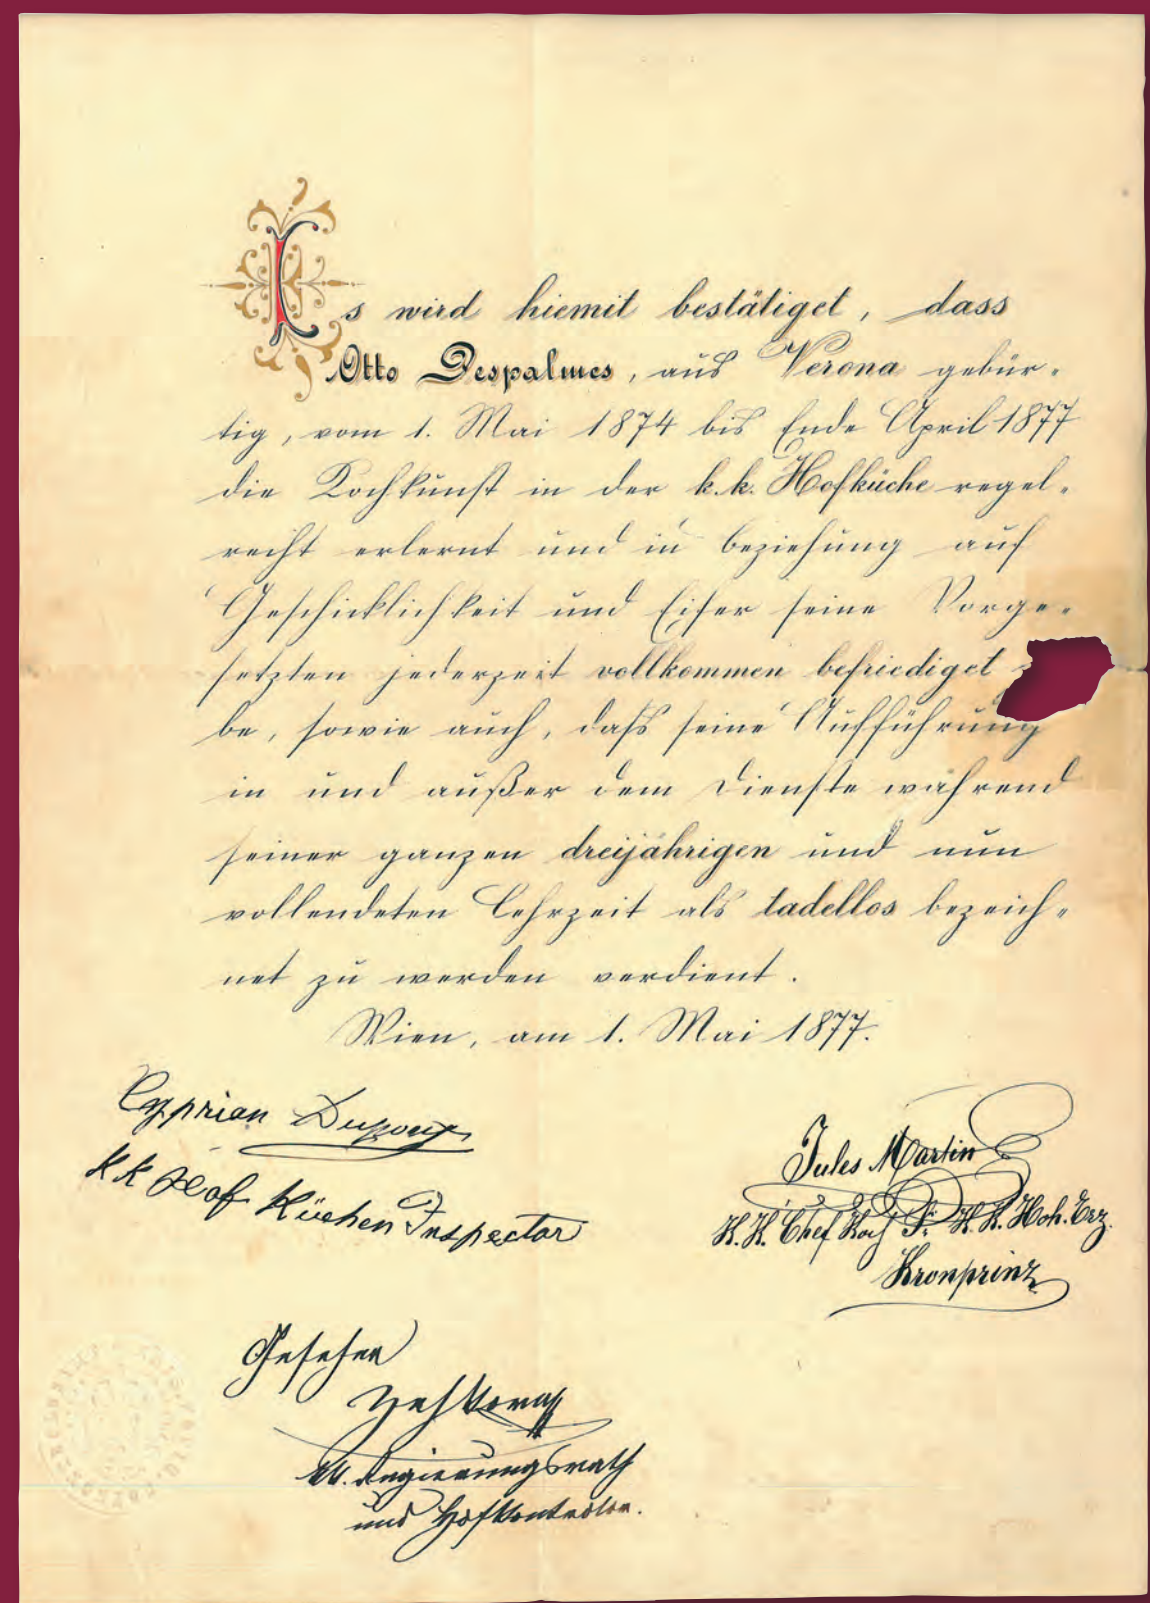 Es wird hiemit bestätiget, dass
Otto Despalmes, aus Verona gebür-
tig, vom 1. Mai 1874 bis Ende April 1877
die Kochkunst in der k.k. Hofküche regel-
recht erlernt und in Beziehung auf
Geschicklichkeit und Eifer seine Vorge-
setzten jederzeit vollkommen befriediget
be, sowie auch, daß seine Aufführung
in und außer dem Dienste während
seiner ganzen dreijährigen und nun
vollendeten Lehrzeit als tadellos bezeich-
net zu werden verdient.
Wien, am 1. Mai 1877.
Cyprian
k k Hof Küchen Inspector
Jules Martin
K. K. Chef Koch Sr. K. K. Hoh. Erz.
Kronprinz
Gesehen
Regierungsrath
und Hofkontrolor.